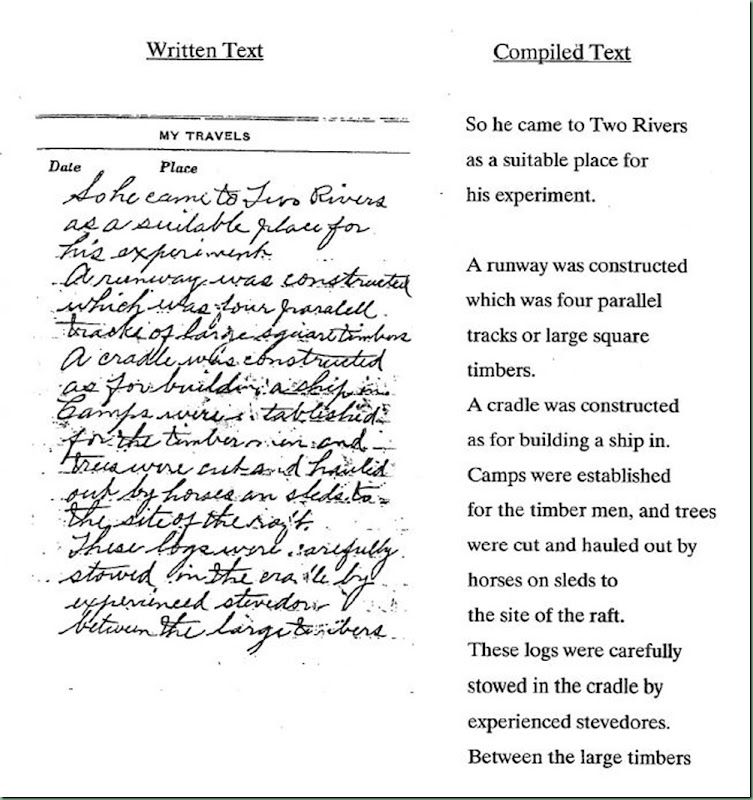 Written Text
MY TRAVELS
Date Place
So he came to Two Rivers
as a suitable place for
his experiment.
A runway was constructed
which was four paralell
tracks of large square timbers
A cradle was constructed
as for building a ship in.
Camps were established
for the timber men and
trees were cut and hauled
out by horses on sleds to
the site of the raft.
These logs were carefully
stowed in the cradle by
experienced
between the large timbers
Compiled Text
So he came to Two Rivers
as a suitable place for
his experiment.
A runway was constructed
which was four parallel
tracks or large square
timbers.
A cradle was constructed
as for building a ship in.
Camps were established
for the timber men, and trees
were cut and hauled out by
horses on sleds to
the site of the raft.
These logs were carefully
stowed in the cradle by
experienced stevedores.
Between the large timbers